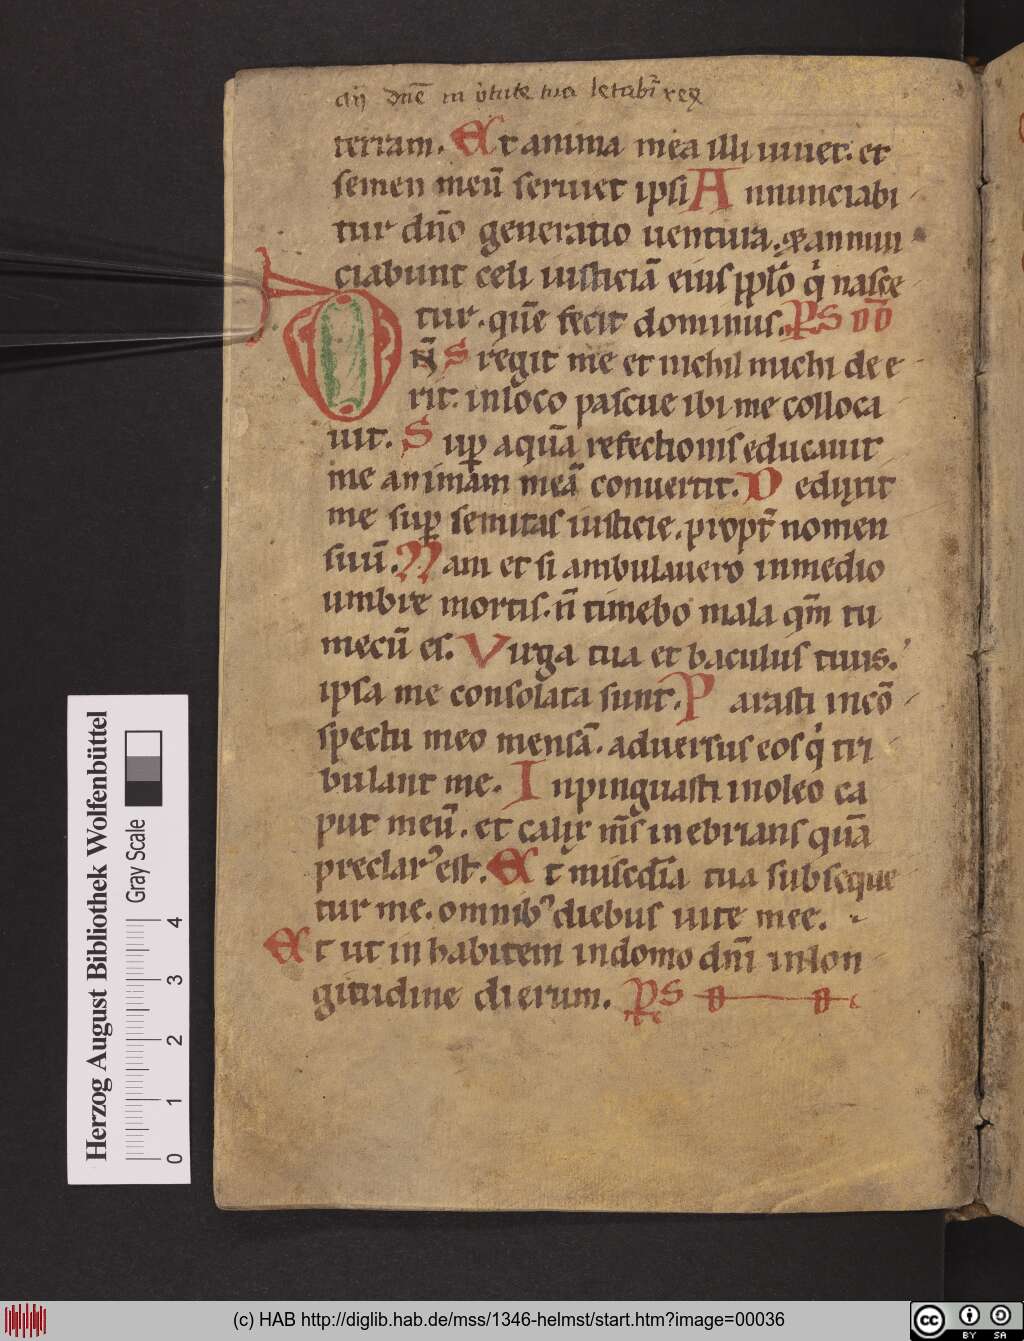 aӳ dn̄e in v̓tute tua letabit̓ rex
terram. Et anima mea illi uiuet. et
semen meū seruiet ipsi Annunciabi
tur dn̄o generatio uentura. et annun
ciabunt celi iusticiā eius pplo̓ qͥ nasce
tur. quē fecit dominus. PS DD
Dn̄S regit me et nichil michi de e
rit. in loco pascue ibi me colloca
uit. Sup aquā refectionis educauit
me animam meā conuertit. Deduxit
me sup semitas iusticie. propt̓ nomen
suū. Nam et si ambulauero in medio
umbre mortis. n̄ timebo mala qm̄ tu
mecū es. Virga tua et baculus tuus.
ipsa me consolata sunt. Parasti in cō
spectu meo mensā. aduersus eos qͥ tri
bulant me. Inpinguasti in oleo ca
put meū. et calix m̄s inebrians quā
preclarꝰ est. Et misc̄dia tua subseque
tur me. omnibꝰ diebus uite mee.
Et ut in habitem in domo dn̄i in lon
gitudine dierum. PS D D
Herzog August Bibliothek Wolfenbüttel
Gray Scale
0 1 2 3 4
(c) HAB http://diglib.hab.de/mss/1346-helmst/start.htm?image=00036
cc BY SA